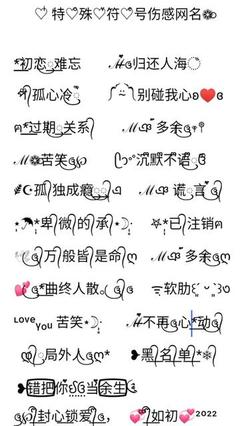 ♡ 特♡殊♡符♡号伤感网名
*初恋ৄ难忘 ℳ归还人海
孤心冷 别碰我心❤️
ฅ*过期ৄ关系 ℳ多余
ℳ❁苦笑 沉默不语
☪孤独成瘾 ℳ谎言
☂*卑微的承*☽ ☆*已注销ฅ
万般皆是命ო ℳ多余ო
💕*曲终人散。 软肋
ᴸᴼⱽᴱyou 苦笑*☽ ℳ不再心*动
局外人ო* ❥黑名单*❄
❥错把你当余生
封心锁爱， 💕如初²⁰²²